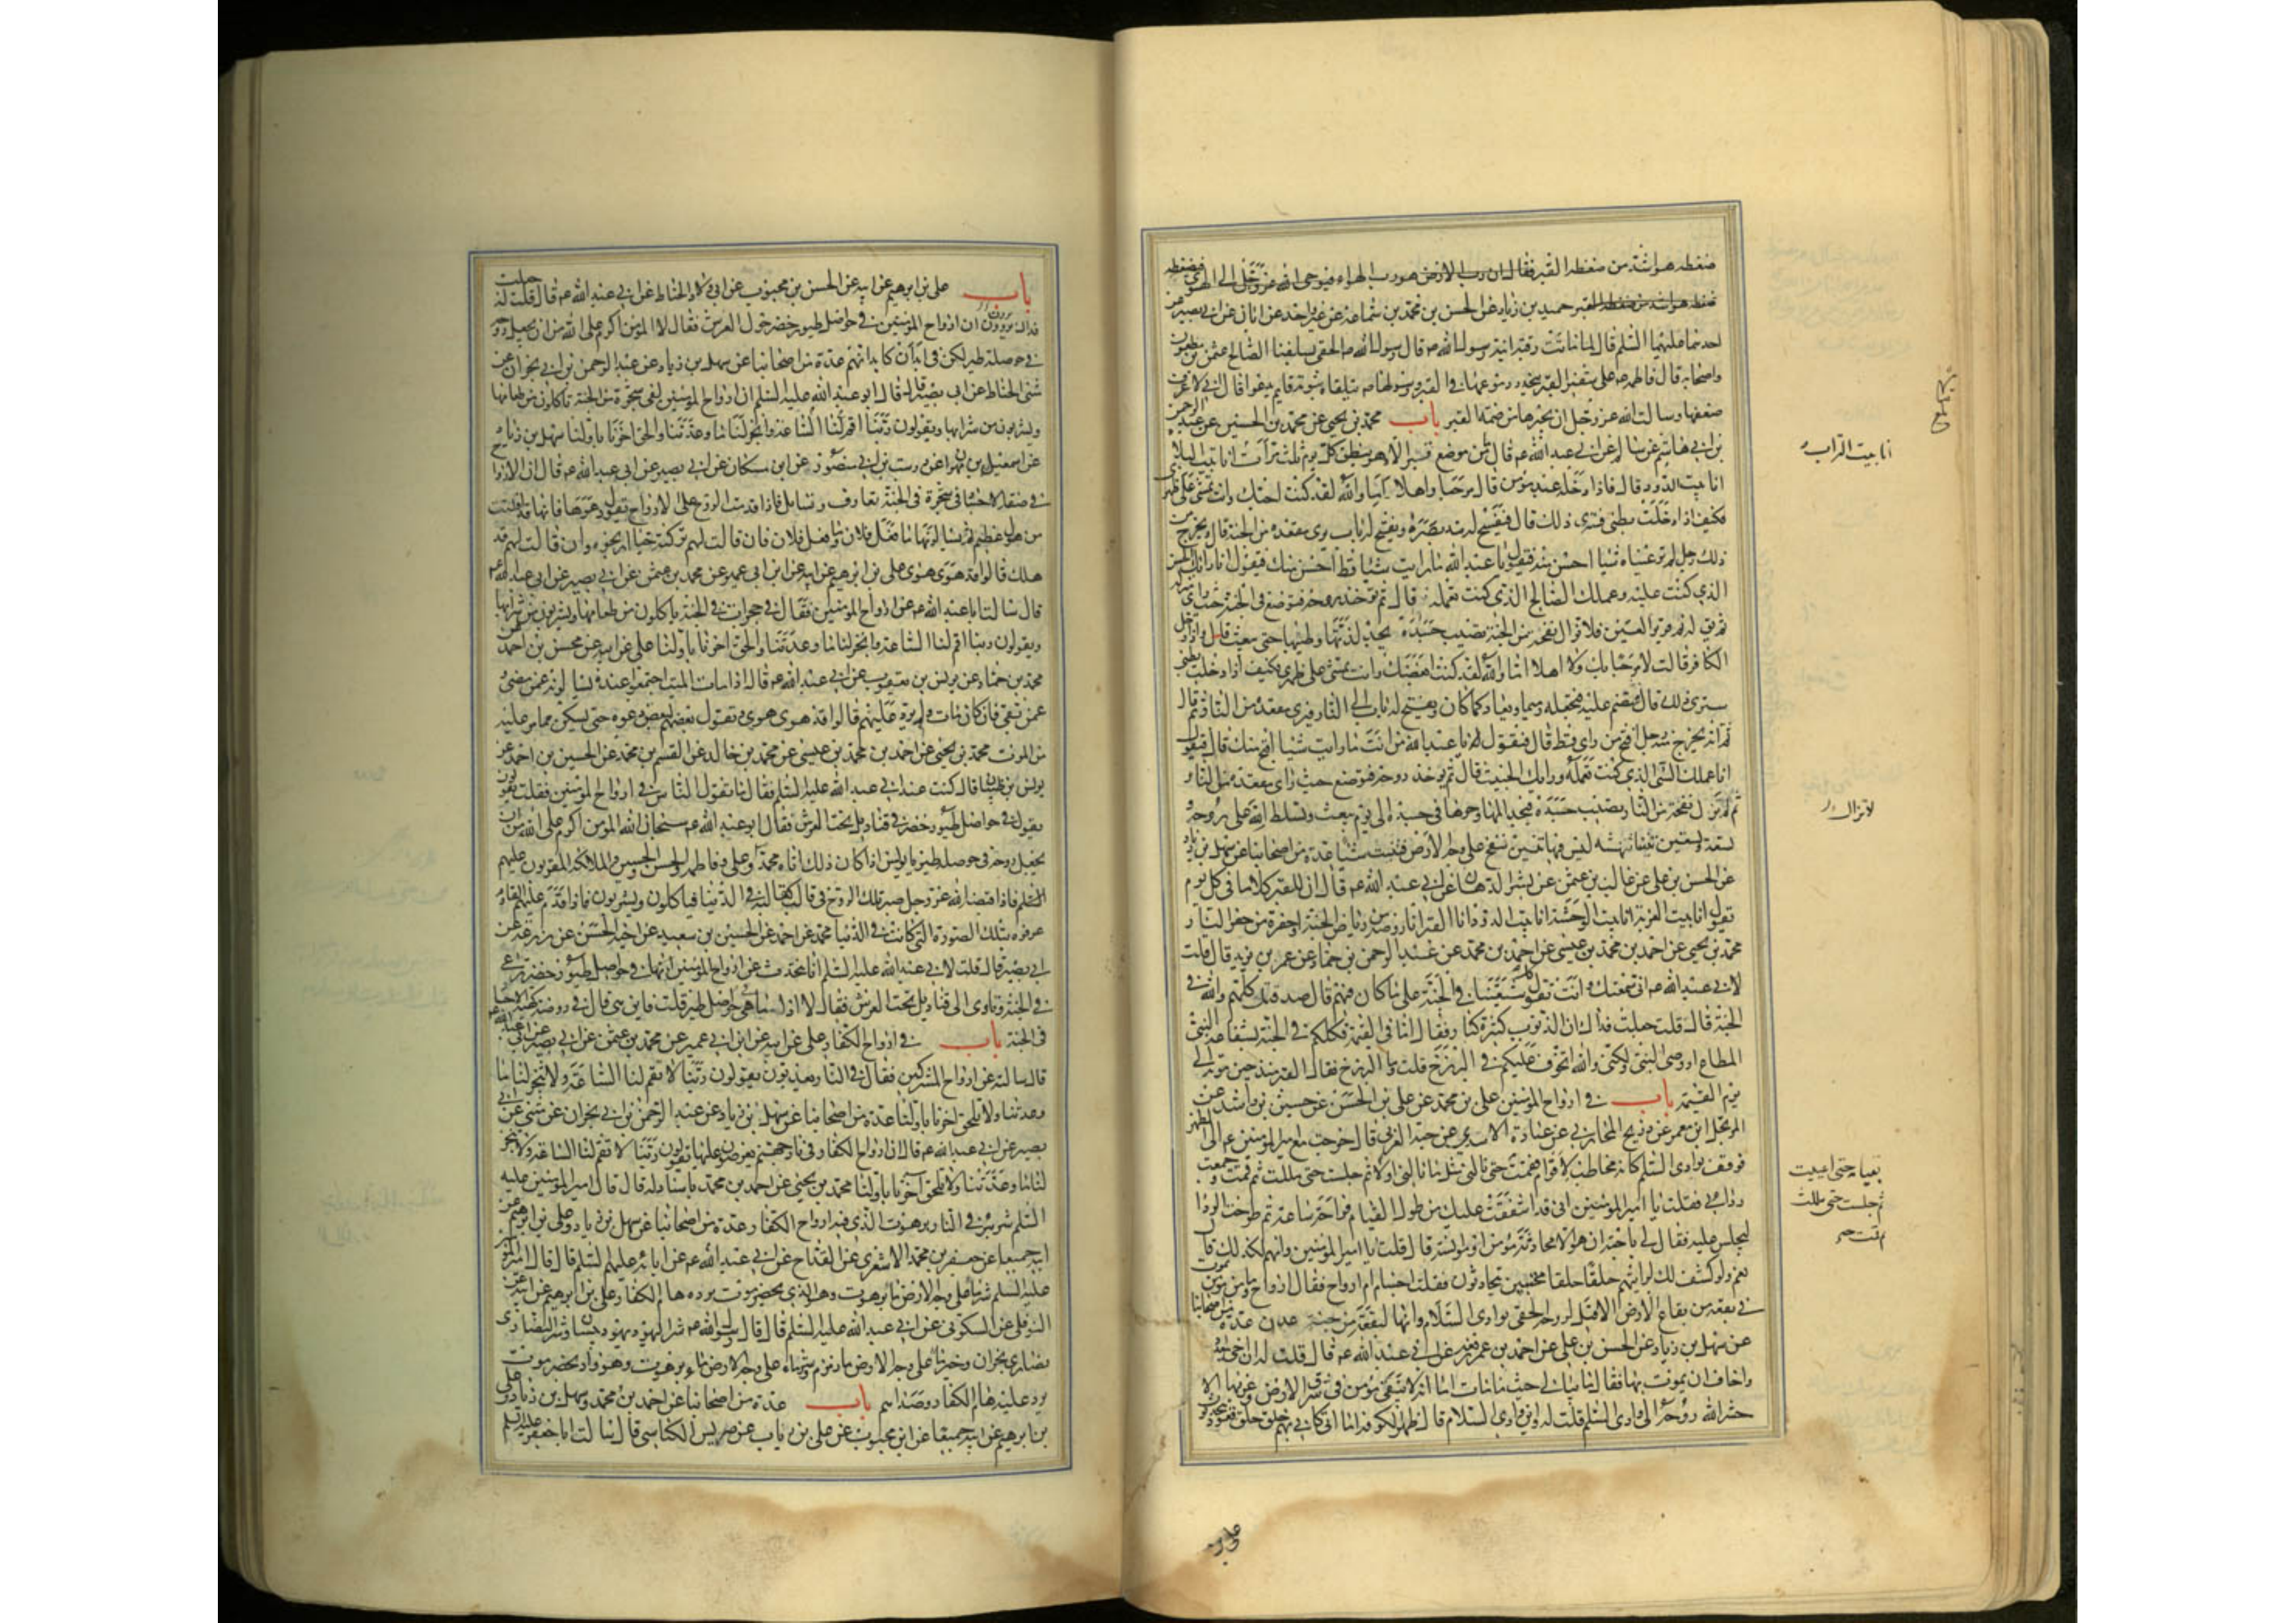 ضغطه هو اشد من ضغطه القبر فقال ان رب الارض هو رب الهواء فيوحى الله عز وجل الى الهوى فيضغطه
ضغطة هو اشد من ضغطة القبر حميد بن زياد عن الحسن بن محمد بن سماعة عن غير واحد عن ابان عن ابي بصير عن
احدهما عليهما السلم قال لما ماتت رقية ابنة رسول الله ص قال رسول الله ص الحقى بسلفنا الصالح عثمن بن مظعون
واصحابه قال وفاطمه ع على شفير القبر تنحدر دموعها في القبر ورسول الله ص يتلقاه بثوبه قايم يدعو قال اني لاعرف
ضعفها وسالت الله عز وجل ان يجيرها من ضمة القبر باب محمد بن يحيى عن محمد بن الحسين عن عبد الرحمن
بن ابي هاشم عن سالم عن ابي عبد الله ع قال ما من موضع قبر الا وهو ينطق كل يوم ثلث مرات انا بيت البلاء
انا بيت الدود قال فاذا دخله عبد مؤمن قال مرحبا واهلا اما والله لقد كنت احبك وانت تمشى على ظهرى
فكيف اذا دخلت بطنى فسترى ذلك قال فيفسح له مد بصره ويفتح له باب يرى مقعده من الجنة قال ويخرج من
ذلك رجل لم تر عيناه شيئا احسن منه فيقول يا عبد الله ما رايت شيئا قط احسن منك فيقول انا رايك الحسن
الذي كنت عليه وعملك الصالح الذي كنت تعمله قال ثم تؤخذ روحه فتوضع في الجنة حيث راى منزله
ثم يق له نم قرير العين فلا تزال نفحة من الجنة تصيب جسده يجد لذتها وطيبها حتى يبعث قال واذا دخل
الكافر قالت لا مرحبا بك ولا اهلا اما والله لقد كنت ابغضك وانت تمشى على ظهرى فكيف اذا دخلت بطنى
سترى ذلك قال فتضم عليه فتجعله رميما ويعاد كما كان ويفتح له باب الى النار فيرى مقعده من النار ثم قال
ثم انه يخرج منه رجل اقبح من راى قط قال فيقول له يا عبد الله من انت ما رايت شيئا اقبح منك قال فيقول
انا عملك السئ الذي كنت تعمله ورايك الخبيث قال ثم تؤخذ روحه فتوضع حيث راى مقعده من النار
ثم لم تزل نفخة من النار تصيب جسده فيجد المها وحرها في جسده الى يوم يبعث ويسلط الله على روحه
تسعة وتسعين تنينا تنهشه ليس فيها تنين ينفخ على وجه الارض فتنبت شيئا عدة من اصحابنا عن سهل بن زياد
عن الحسن بن على عن غالب بن عثمن عن بشير الدهان عن ابي عبد الله ع قال ان للقبر كلاما في كل يوم
يقول انا بيت الغربة انا بيت الوحشة انا بيت الدود انا القبر انا روضة من رياض الجنة او حفرة من حفر النار
محمد بن يحيى عن احمد بن محمد بن عيسى عن احمد بن محمد عن عبد الرحمن بن حماد عن عمر بن يزيد قال قلت
لابي عبد الله ع اني سمعتك وانت تقول كل شيعتنا في الجنة على ما كان فيهم قال صدقتك كلهم والله في
الجنة قال قلت جعلت فداك ان الذنوب كثيرة كبار فقال اما في القيمة فكلكم في الجنة بشفاعة النبي
المطاع او وصى النبي ولكنى والله اتخوف عليكم في البرزخ قلت وما البرزخ فقال القبر منذ حين موته الى
يوم القيمة باب في ارواح المؤمنين على بن محمد عن على بن الحسن عن حسين بن راشد عن
المرتجل ابن معمر عن ذريح المحاربي عن عباية الاسدى عن حبة العرني قال خرجت مع امير المؤمنين ع الى الظهر
فوقف بوادى السلم كانه مخاطب لاقوام فقمت حتى نالنى مثل ما نالني اولا ثم جلست حتى مللت ثم قمت وجمعت
ردائي فقلت يا امير المؤمنين اني قد اشفقت عليك من طول القيام فراحة ساعة ثم طرحت الردا
ليجلس عليه فقال لي يا حبة ان هو الا محادثة مؤمن او مؤانسته قال قلت يا امير المؤمنين وانهم لكذلك قال
نعم ولو كشف لك لرايتهم حلقا حلقا محتبين يتحادثون فقلت اجسام ام ارواح فقال ارواح وما من مؤمن يموت
في بقعة من بقاع الارض الا قيل لروحه الحقى بوادى السلام وانها لبقعة من جنة عدن عدة من اصحابنا
عن سهل بن زياد عن الحسن بن على عن احمد بن عمر رفعه عن ابي عبد الله ع قال قلت له ان اخي ببغداد
واخاف ان يموت بها فقال ما تبالى حيث ما مات اما انه لا يبقى مؤمن في شرق الارض وغربها الا
حشر الله روحه الى وادى السلم قلت له واين وادى السلام قال ظهر الكوفة اما اني كاني بهم حلق حلق قعود يتحدثون
انا بيت التراب
لا تزال
بقيامه حتى اعييت
ثم جلست حتى مللت
ثم قمت
على بن
باب على بن ابرهيم عن ابيه عن الحسن بن محبوب عن ابي ولاد الحناط عن ابي عبد الله ع قال قلت له جعلت
فداك يروون ان ارواح المؤمنين في حواصل طيور خضر حول العرش فقال لا المؤمن اكرم على الله من ان يجعل روحه
في حوصلة طير لكن في ابدان كابدانهم عدة من اصحابنا عن سهل بن زياد عن عبد الرحمن بن ابي نجران عن
مثنى الحناط عن ابي بصير قال قال ابو عبد الله عليه السلم ان ارواح المؤمنين لفى شجرة من الجنة ياكلون من طعامها
ويشربون من شرابها ويقولون ربنا اقم لنا الساعة وانجز لنا ما وعدتنا والحق اخرنا باولنا سهل بن زياد
عن اسمعيل بن مهران عن درست بن ابي منصور عن ابن مسكان عن ابي بصير عن ابي عبد الله ع قال ان الارواح
في صفة الاجساد في شجرة في الجنة تعارف وتسايل فاذا قدمت الروح على الارواح تقول دعوها فانها قد افلتت
من هول عظيم ثم يسالونها ما فعل فلان وما فعل فلان فان قالت لهم تركته حيا ارتجوه وان قالت لهم قد
هلك قالوا قد هوى هوى على بن ابرهيم عن ابيه عن ابن ابي عمير عن محمد بن عثمن عن ابي بصير عن ابي عبد الله ع
قال سالت ابا عبد الله ع عن ارواح المؤمنين فقال في حجرات في الجنة ياكلون من طعامها ويشربون من شرابها
ويقولون ربنا اقم لنا الساعة وانجز لنا ما وعدتنا والحق اخرنا باولنا على عن ابيه عن محسن بن احمد عن
محمد بن حماد عن يونس بن يعقوب عن ابي عبد الله ع قال اذا مات الميت اجتمعوا عنده يسالونه عمن مضى
عمن بقى فان كان مات ولم يرد عليهم قالوا قد هوى هوى ويقول بعضهم لبعض دعوه حتى يسكن مما مر عليه
من الموت محمد بن يحيى عن احمد بن محمد بن عيسى عن محمد بن خالد عن القسم بن محمد عن الحسين بن احمد عن
يونس بن ظبيان قال كنت عند ابي عبد الله عليه السلم فقال ما يقول الناس في ارواح المؤمنين فقلت يقولون
يقولون في حواصل طيور خضر في قناديل تحت العرش فقال ابو عبد الله ع سبحان الله المؤمن اكرم على الله من ان
يجعل روحه في حوصلة طير يا يونس اذا كان ذلك اتاه محمد وعلى وفاطمة والحسن والحسين والملائكة المقربون عليهم
السلم فاذا قبضه الله عز وجل صير تلك الروح في قالب كقالبه في الدنيا فياكلون ويشربون فاذا قدم عليهم القادم
عرفوه بتلك الصورة التي كانت في الدنيا محمد عن احمد عن الحسين بن سعيد عن اخيه الحسن عن زرعة عن
ابي بصير قال قلت لابي عبد الله عليه السلم انا نتحدث عن ارواح المؤمنين انها في حواصل طيور خضر ترعى
في الجنة وتاوى الى قناديل تحت العرش فقال لا اذا ما هي في حواصل طير قلت فاين هى قال في روضة كهيئة الاجساد
في الجنة باب في ارواح الكفار على عن ابيه عن ابن ابي عمير عن محمد بن عثمن عن ابي بصير عن ابي عبد الله ع
قال سالته عن ارواح المشركين فقال في النار يعذبون يقولون ربنا لا تقم لنا الساعة ولا تنجز لنا ما
وعدتنا ولا تلحق اخرنا باولنا عدة من اصحابنا عن سهل بن زياد عن عبد الرحمن بن ابي نجران عن مثنى عن ابي
بصير عن ابي عبد الله ع قال ان ارواح الكفار في نار جهنم يعرضون عليها يقولون ربنا لا تقم لنا الساعة ولا تنجز
لنا ما وعدتنا ولا تلحق آخرنا باولنا محمد بن يحيى عن احمد بن محمد باسناد له قال قال امير المؤمنين عليه
السلم شر بئر في النار برهوت الذي فيه ارواح الكفار عدة من اصحابنا عن سهل بن زياد وعلى بن ابرهيم عن
ابيه جميعا عن جعفر بن محمد الاشعرى عن القداح عن ابي عبد الله ع عن ابائه عليهم السلم قال قال امير المؤمنين
عليه السلم شر ماء على وجه الارض ماء برهوت وهو الذي بحضرموت يرده هام الكفار على بن ابرهيم عن ابيه عن
النوفلى عن السكونى عن ابي عبد الله عليه السلم قال قال رسول الله ص شر اليهود يهود بيسان وشر النصارى
نصارى نجران وخير ماء على وجه الارض ماء زمزم وشر ماء على وجه الارض ماء برهوت وهو واد بحضرموت
يرد عليه هام الكفار وصداهم باب عدة من اصحابنا عن احمد بن محمد وسهل بن زياد وعلى
بن ابرهيم عن ابيه جميعا عن ابن محبوب عن على بن رياب عن ضريس الكناسى قال سالت ابا جعفر عليه السلم